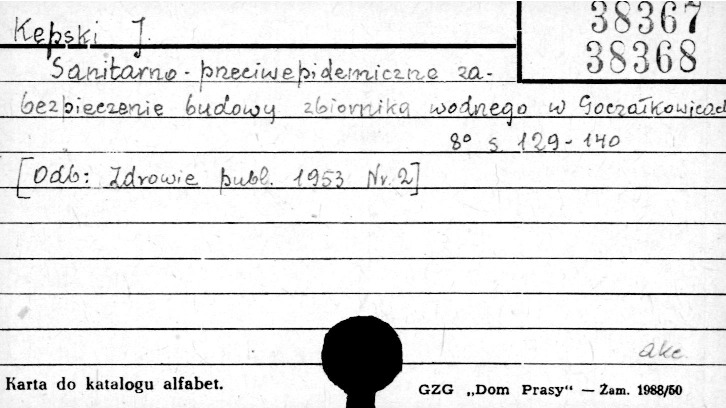 Kępski J.
38367
38368
Sanitarno-przeciwepidemiczne za-
bezpieczenie budowy zbiornika wodnego w Goczałkowicach
8° s 129-140
[Odb: Zdrowie publ. 1953 Nr. 2]
akc.
Karta do katalogu alfabet.
GZG „Dom Prasy" — Żam. 1988/50